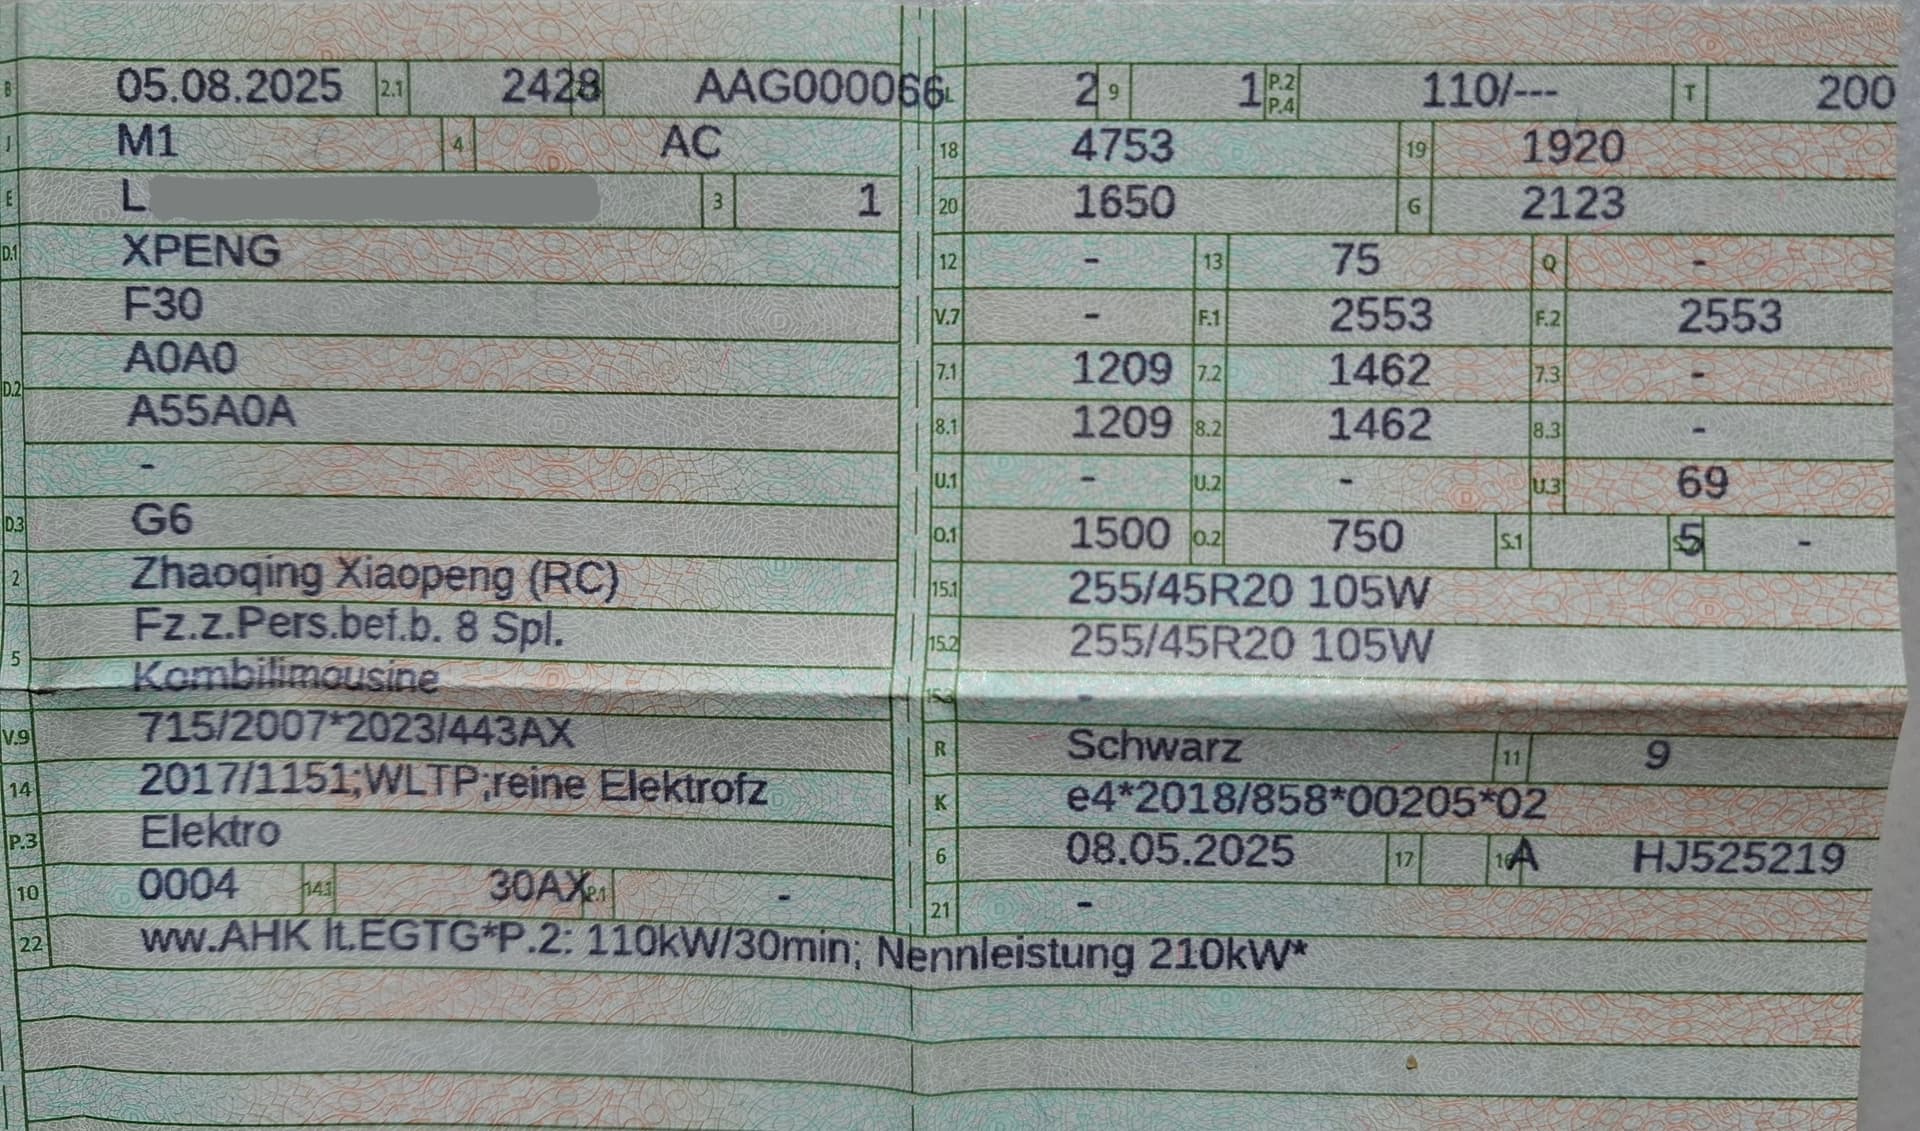 B 05.08.2025 2.1 2428 AAG000066 L 2 9 1 P.2 P.4 110/--- T 200
J M1 4 AC 18 4753 19 1920
E L 3 1 20 1650 G 2123
D.1 XPENG 12 - 13 75 Q -
F30 V.7 - F.1 2553 F.2 2553
D.2 A0A0 7.1 1209 7.2 1462 7.3 -
A55A0A 8.1 1209 8.2 1462 8.3 -
- U.1 - U.2 - U.3 69
D.3 G6 O.1 1500 O.2 750 S.1 5 -
2 Zhaoqing Xiaopeng (RC) 15.1 255/45R20 105W
5 Fz.z.Pers.bef.b. 8 Spl. 15.2 255/45R20 105W
Kombilimousine 15.3 -
V.9 715/2007*2023/443AX R Schwarz 11 9
14 2017/1151;WLTP;reine Elektrofz K e4*2018/858*00205*02
P.3 Elektro 6 08.05.2025 17 16 A HJ525219
10 0004 14.1 30AX P.1 - 21 -
22 ww.AHK lt.EGTG*P.2: 110kW/30min; Nennleistung 210kW*